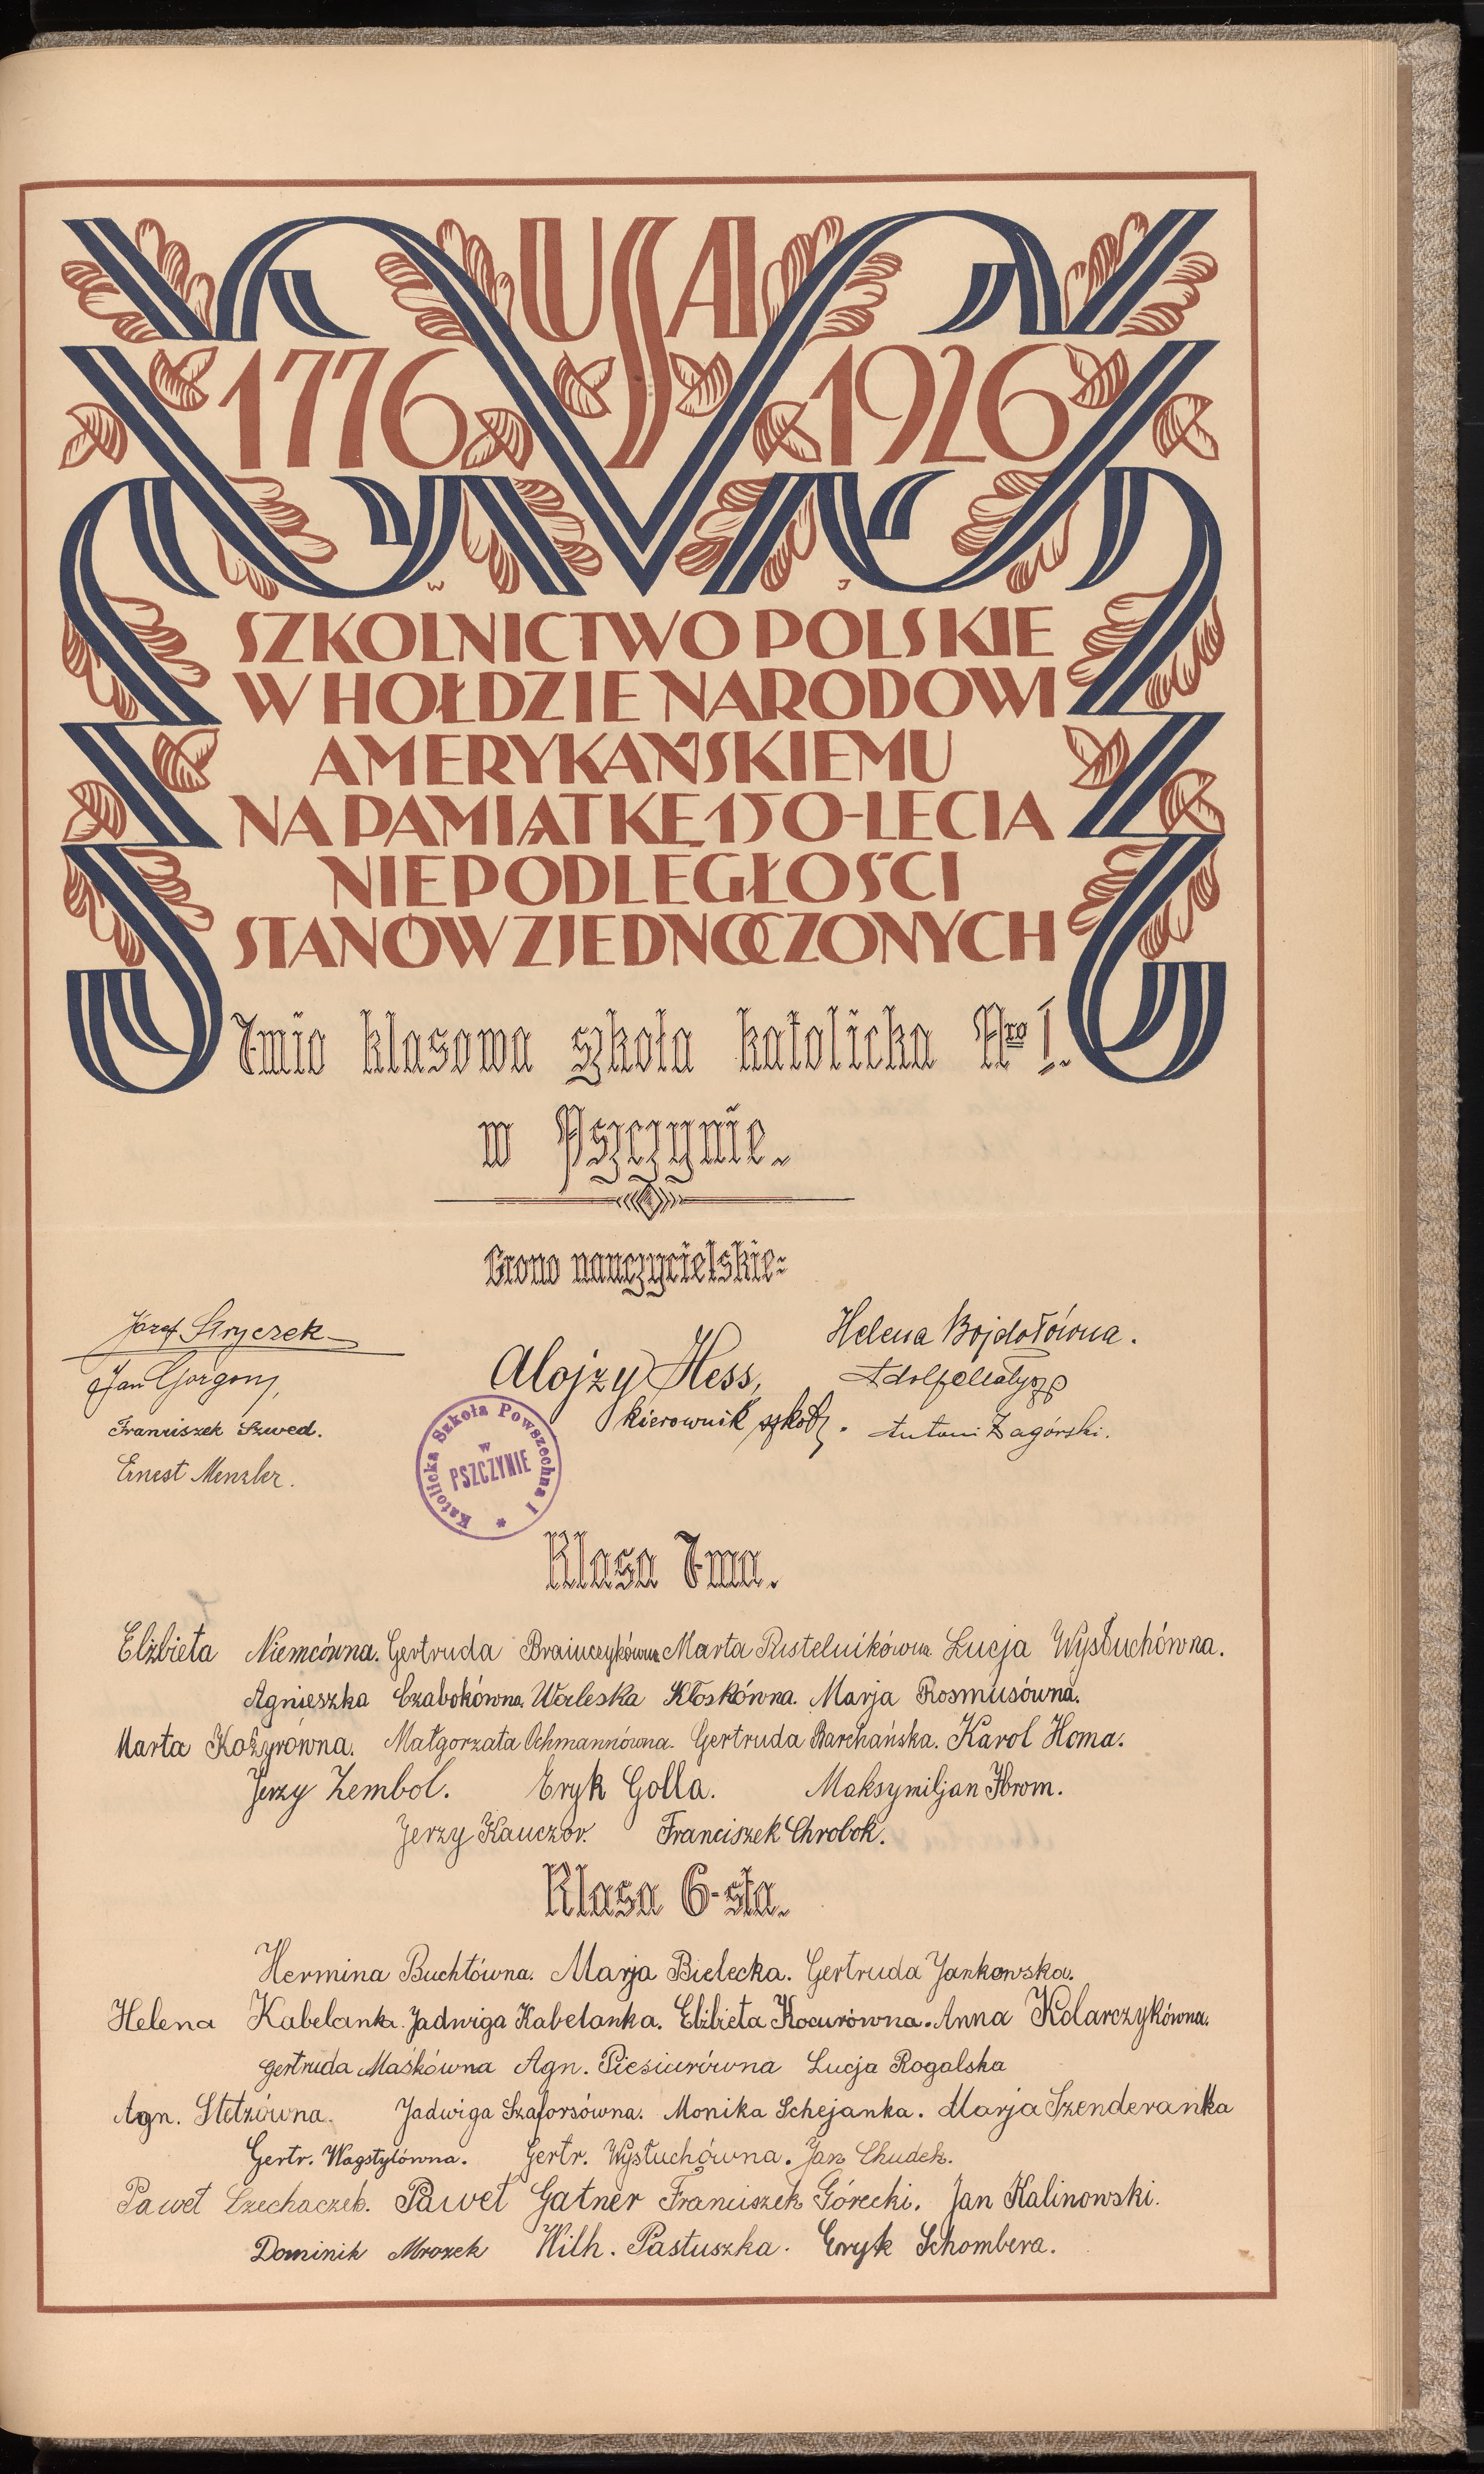 USA
1776 1926
W J
SZKOLNICTWO POLSKIE
W HOŁDZIE NARODOWI
AMERYKAŃSKIEMU
NA PAMIĄTKĘ 150-LECIA
NIEPODLEGŁOŚCI
STANÓW ZJEDNOCZONYCH
7mio klasowa szkoła katolicka Nro I.
w Pszczynie.
Grono nauczycielskie:
Józef Stryczek
Jan Gorgon,
Franciszek Szwed.
Ernest Menzler.
Alojzy Hess,
kierownik szkoły.
Helena Bojdołówna.
Adolf Małysz
Antoni Zagórski.
Katolicka Szkoła Powszechna I
w
PSZCZYNIE
Klasa 7ma.
Elżbieta Niemcówna. Gertruda Marta Pustelnikówna. Łucja Wysłuchówna.
Agnieszka Czabokówna. Waleska Kłoskówna. Marja Rosmusówna.
Marta Kożyrówna. Małgorzata Ochmannówna. Gertruda Barchańska. Karol Homa.
Jerzy Zembol. Eryk Golla. Maksymiljan Hrom.
Jerzy Kauczor. Franciszek Chrobok.
Klasa 6-sta.
Hermina Buchtówna. Marja Bielecka. Gertruda Jankowska.
Helena Kabelanka. Jadwiga Kabelanka. Elżbieta Kocurówna. Anna Kolarczykówna.
Gertruda Maśkówna Agn. Piesiurówna Łucja Rogalska
Agn. Stetzówna. Jadwiga Szaforsówna. Monika Schejanka. Marja Szenderanka
Gertr. Wagstylówna. Gertr. Wysłuchówna. Jan Chudek.
Paweł Czechaczek. Paweł Gatner Franciszek Górecki. Jan Kalinowski.
Dominik Mrozek Wilh. Pastuszka. Eryk Schombera.